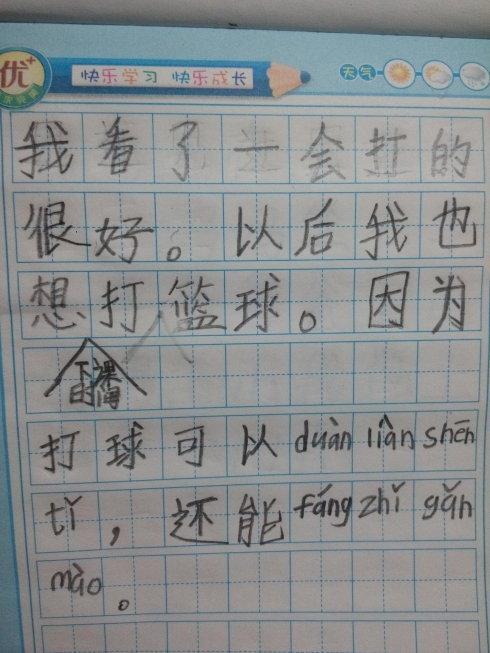 优+
快乐学习 快乐成长
天气
我看了一会打的
很好。以后我也
想打篮球。因为
下课
打球可以duàn liàn shēn
tǐ，还能fáng zhǐ gǎn
mào。